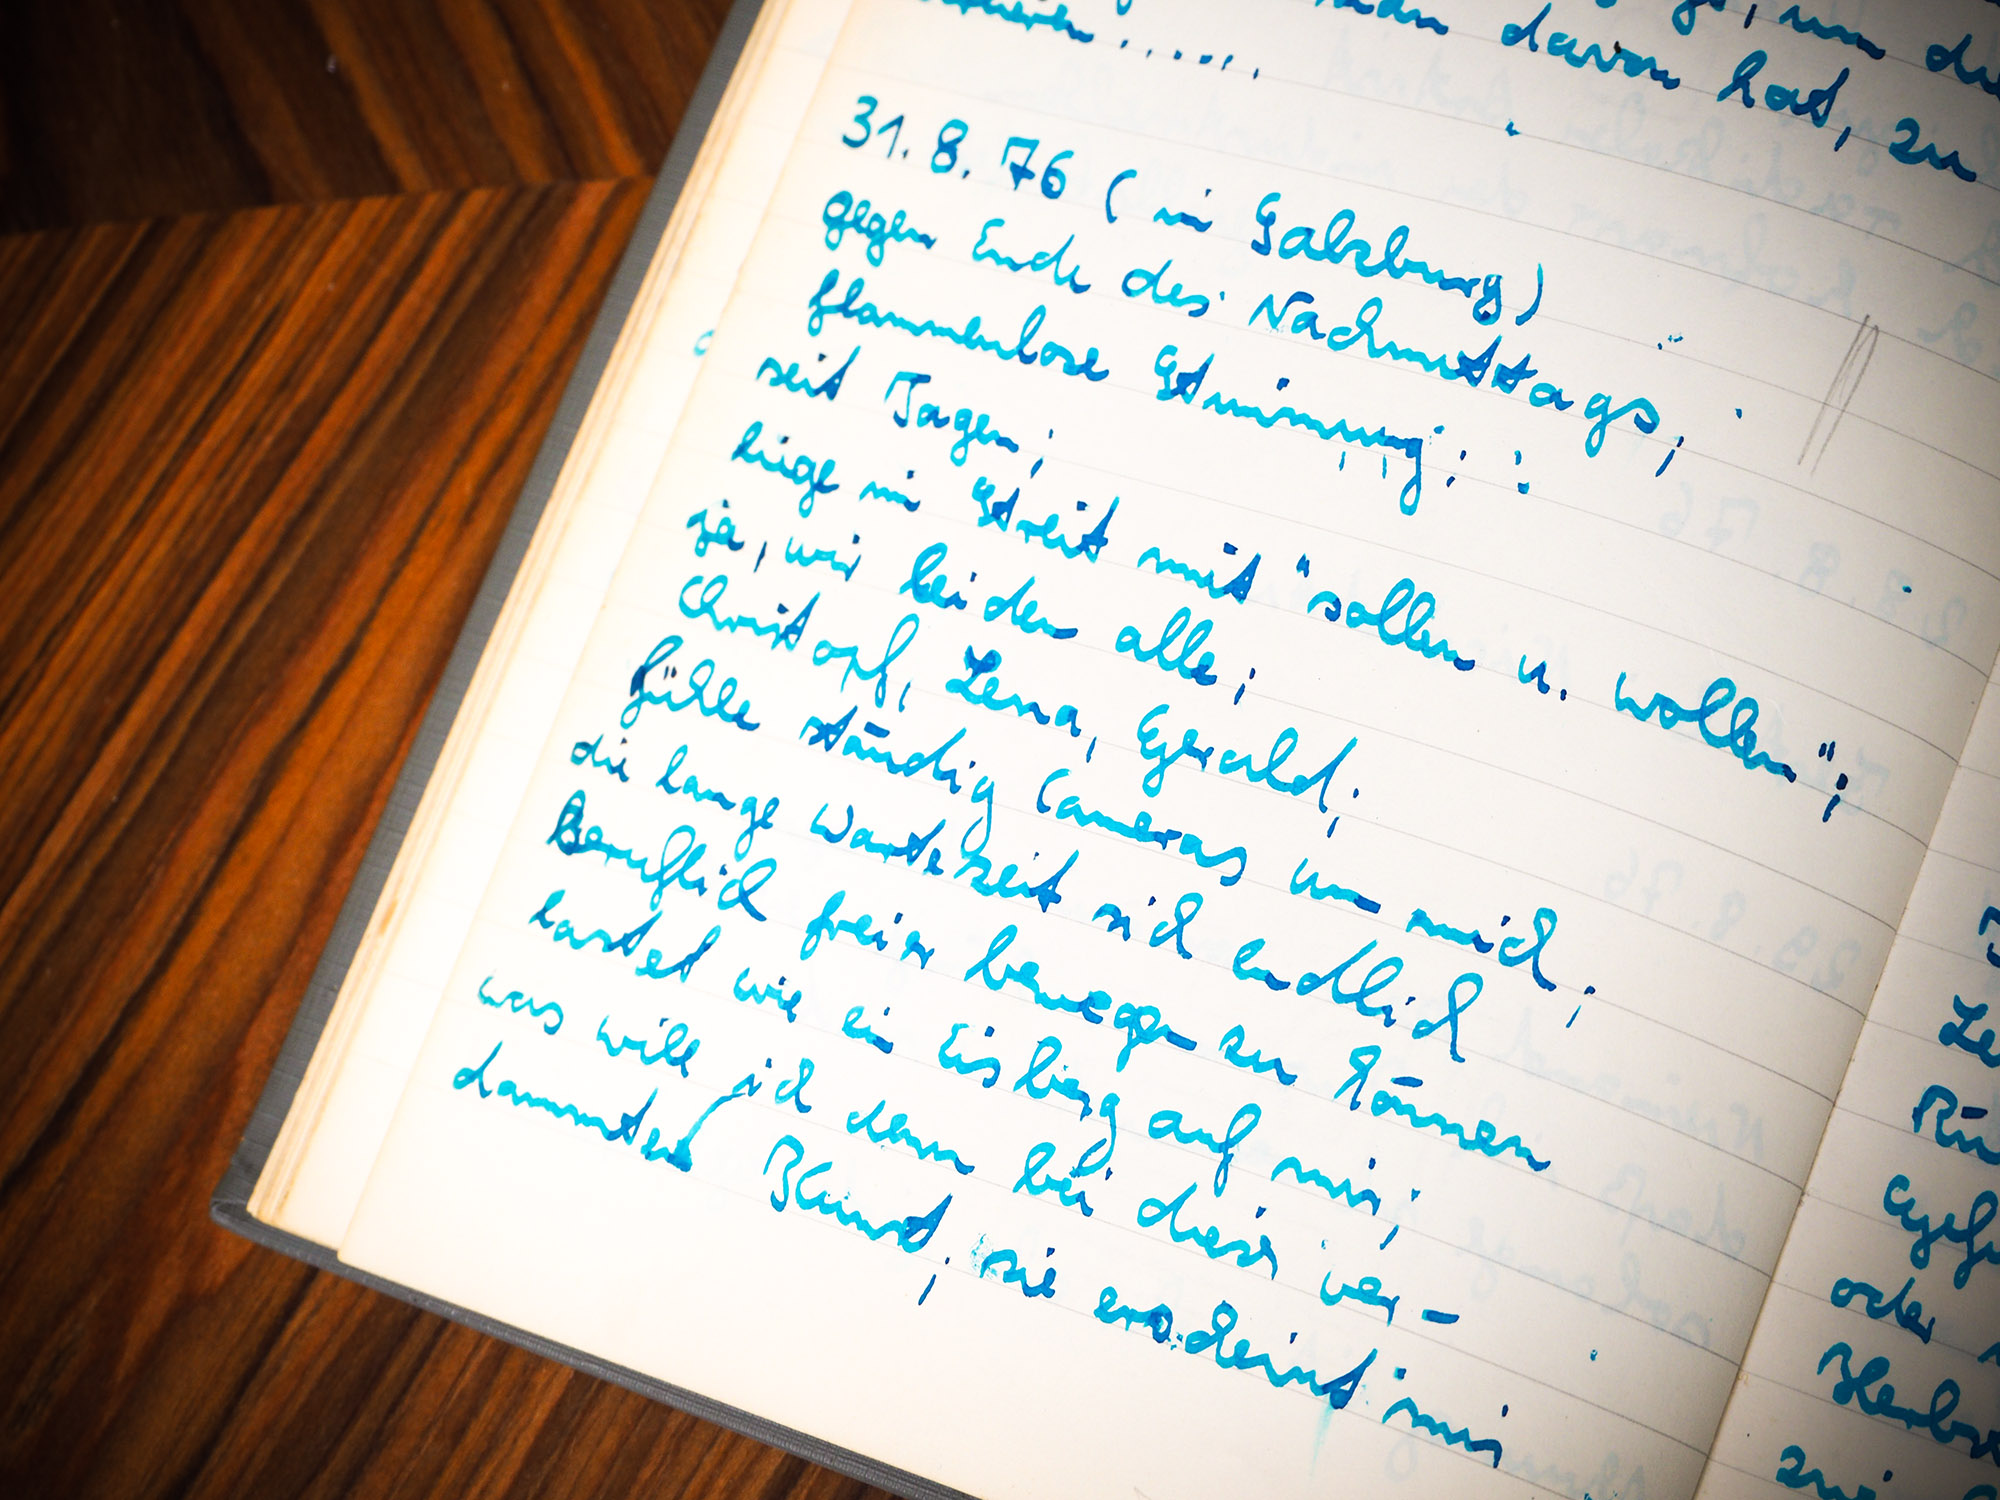 um die
man davon hat, zu
31.8.76 (in Salzburg)
gegen Ende des Nachmittags,
flammenlose Stimmung;
seit Tagen;
liege im Streit mit "sollen u. wollen";
ja, wir leiden alle;
Christopf, Lena, Gerald;
fühle ständig Cameras um mich;
die lange Wartezeit sich endlich
Beruflich freier bewegen zu können
lastet wie ein Eisberg auf mir;
was will ich denn bei dieser ver-
dammten Kunst; sie erscheint mir
Le
Rü
oder
Herbs